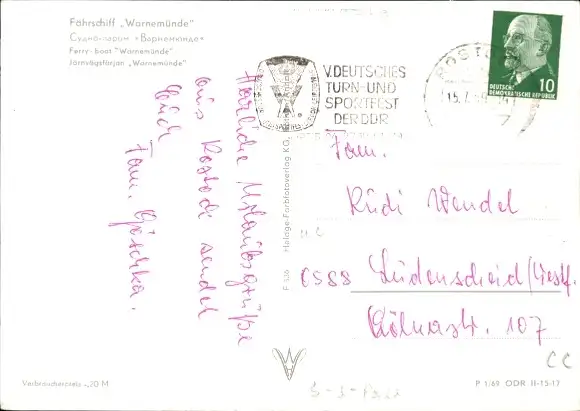 Fährschiff „Warnemünde"
Судно-паром «Варнемюнде»
Ferry-boat "Warnemünde"
Järnvägsfärjan „Warnemünde"
V. DEUTSCHES
TURN- UND
SPORTFEST
DER DDR
ROSTOCK
15.7.
10
DEUTSCHE
DEMOKRATISCHE REPUBLIK
Herzliche Urlaubsgrüße
aus Rostock sendet
Euch
Fam.
Fam.
Rudi Wendel
588 Lüdenscheid/Westf.
Kölnerstr. 107
Verbraucherpreis -,20 M
P 1/69 ODR II-15-17
CC